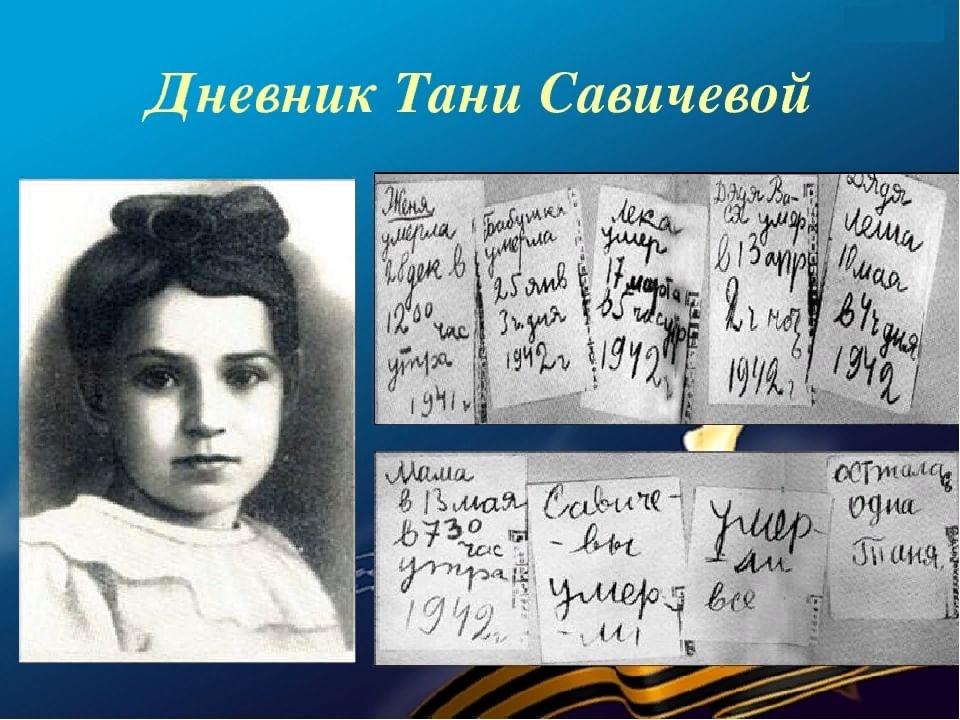 Дневник Тани Савичевой
Женя
умерла
28 дек в
12 00 час
утра
1941 г
Бабушка
умерла
25 янв
3 ч. дня
1942 г
Лека
умер
17 марта
в 5 час утр
1942 г
Дядя Ва-
ся умер
в 13 апр
2 ч ноч
1942 г
Дядя
Леша
10 мая
в 4 ч дня
1942
Мама
в 13 мая
в 7 30
час
утра
1942 г
Савиче-
-вы
умер-
-ли
умер-
ли
все
осталась
одна
Таня